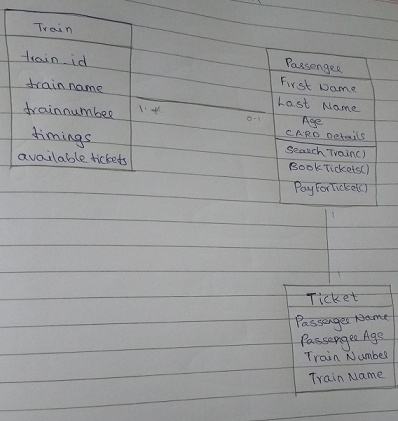 Train
train_id
train name
train number
timings
available tickets
1..*
0..1
Passenger
First Name
Last Name
Age
CARD Details
Search Train()
Book Tickets()
Pay For Ticket()
1
1
Ticket
Passenger Name
Passenger Age
Train Number
Train Name